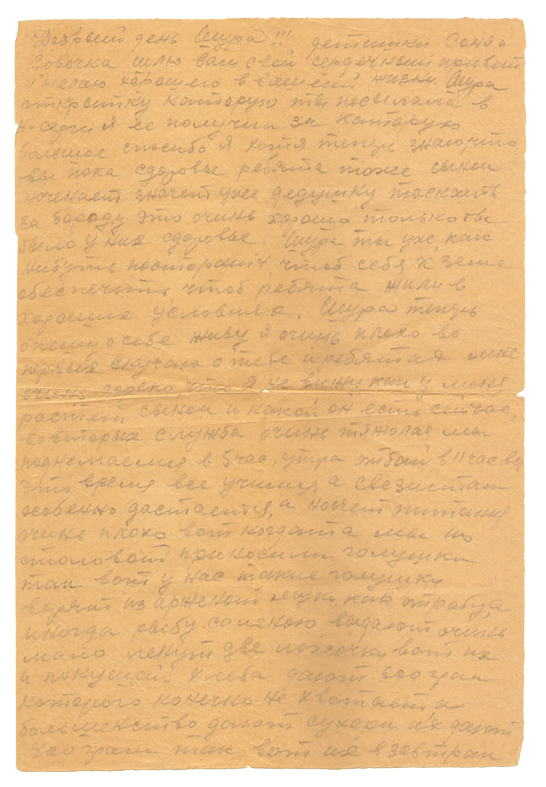 Добрый день Шура!!! детишки Соня и
Вовочка шлю вам свой сердечный привет
и желаю хорошего в вашей жизни. Шура
открытку каторую ты посылала в
я ее получил за каторую
большое спасибо я хотя теперь знаю что
вы пока здоровы ребята тоже сынок
начинает значет уже дедушку таскать
за бороду это очинь хорошо только бы
было у них здоровье. Шура ты уж как
нибуть постарайся чтоб себя к зиме
обеспечить чтоб ребята жили в
хороших условиях. Шура теперь
опишу о себе живу я очинь плохо во
первых скучаю о тебе и ребятах мне
очинь горько что я не вижу как у меня
растет сынок и какой он есть сейчас,
вовторых служба очинь тяжолая мы
поднемаемся в 5 час. утра отбой в 11 час вв
это время все учимся а связистам
особенно дастается, а насчет питания
очинь плохо вот когдата мы на
столовой приносили галушки
так вот у нас такие галушки
варят из аржаной муки как отрабуа,
иногда рыбу соленою выдают очинь
мало кенут две лажочки вот их
и покушай хлеба дают 600 грам
каторого конечно не хватает а
большенство дают сухари их дают
400 грам так вот их в завтрак